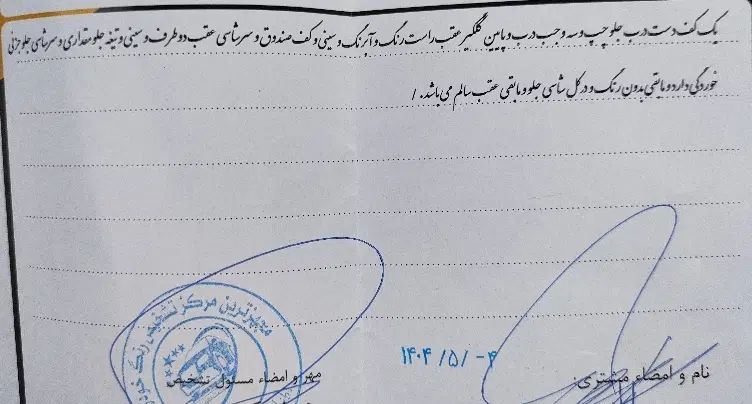 یک کف دست درب جلو چپ و سه وجب درب و پایین گلگیر عقب راست رنگ و آبرنگ و سینی و کف صندوق و سرشاسی عقب دو طرف و سینی و تیغه جلو مقداری و سرشاسی جلو جزئی
خوردگی دارد و مابقی بدون رنگ و در کل شاسی جلو و مابقی عقب سالم می باشد. /
مجهزترین مرکز تشخیص رنگ
۱۴۰۴/۵/-۴
نام و امضاء مشتری:
مهر و امضاء مسئول تشخیص